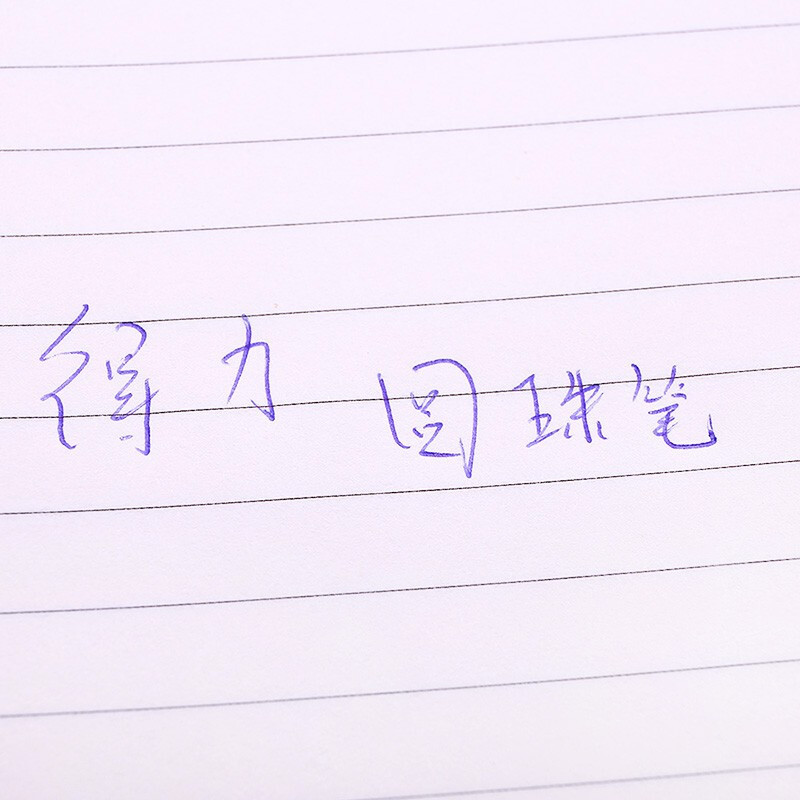 得力 圆珠笔